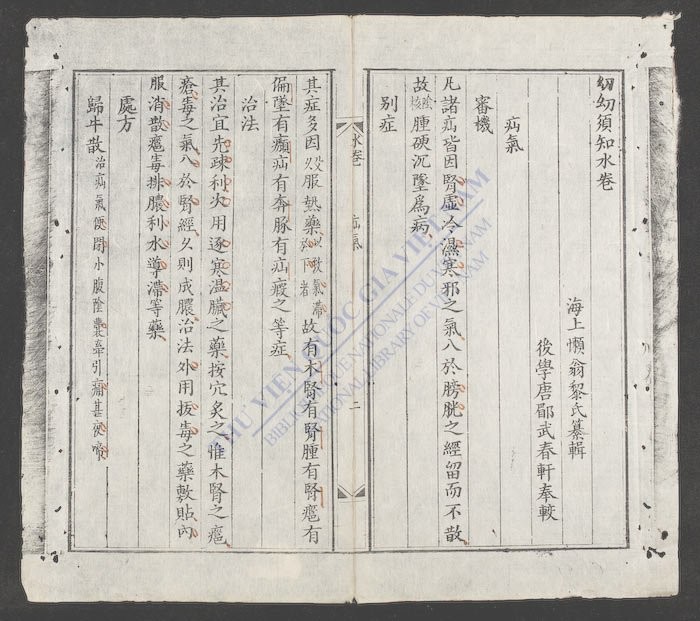 幼幼須知水卷
海上懶翁黎氏纂輯
後學唐郿武春軒奉較
疝氣
審機
凡諸疝皆因腎虛冷濕寒邪之氣入於膀胱之經留而不散
故陰核腫硬沉墜爲病
別症
水卷 疝氣 二
其症多因久服熱藥以致氣滯者故有木腎有腎腫有腎癰有
偏墜有㿗疝有奔豚有疝瘕之等症
治法
其治宜先疎利次用逐寒温臟之藥按穴炙之惟木腎之癰
瘡毒之氣入於腎經久則成膿治法外用拔毒之藥敷貼内
服消散癰毒排膿利水導滯等藥
處方
歸牛散治疝氣便閉小腹陰囊牽引痛甚
THƯ VIỆN QUỐC GIA VIỆT NAM
BIBLIOTHÈQUE NATIONALE DU VIETNAM
NATIONAL LIBRARY OF VIETNAM